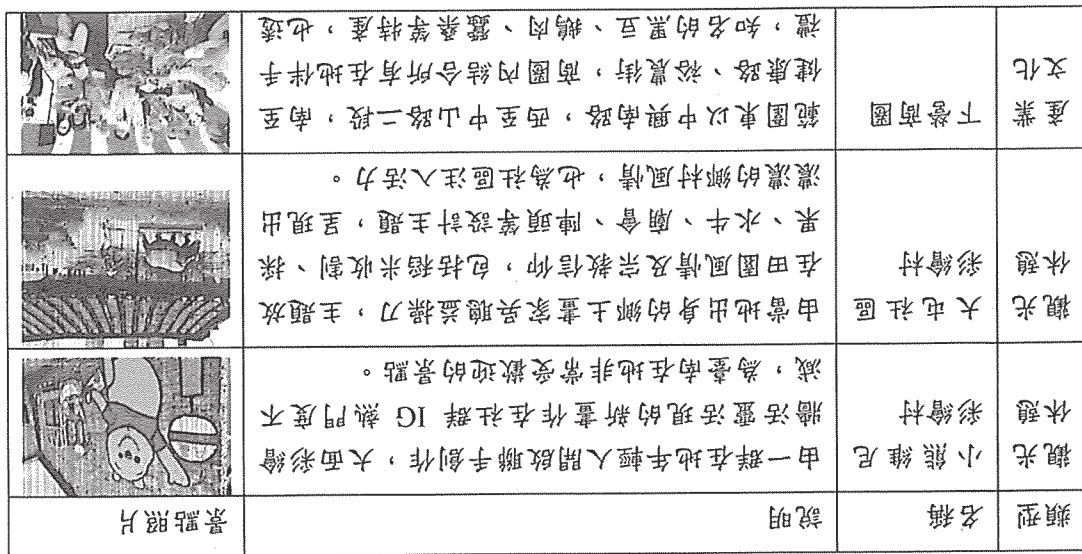 類型 名稱 說明 景點照片
觀光
休憩
小熊維尼
彩繪村
由一群在地年輕人開啟聯手創作，大面彩繪
牆活靈活現的新畫作在社群 IG 熱門度不
減，為臺南在地非常受歡迎的景點。
觀光
休憩
大屯社區
彩繪村
由當地出身的鄉土畫家吳聰益操刀，主題放
在田園風情及宗教信仰，包括稻米收割、採
果、水牛、廟會、陣頭等設計主題，呈現出
濃濃的鄉村風情，也為社區注入活力。
產業
文化
下營商圈
範圍東以中興南路，西至中山路二段，南至
健康路、裕農街，商圈內結合所有在地伴手
禮，知名的黑豆、鵝肉、蠶桑等特產，也透